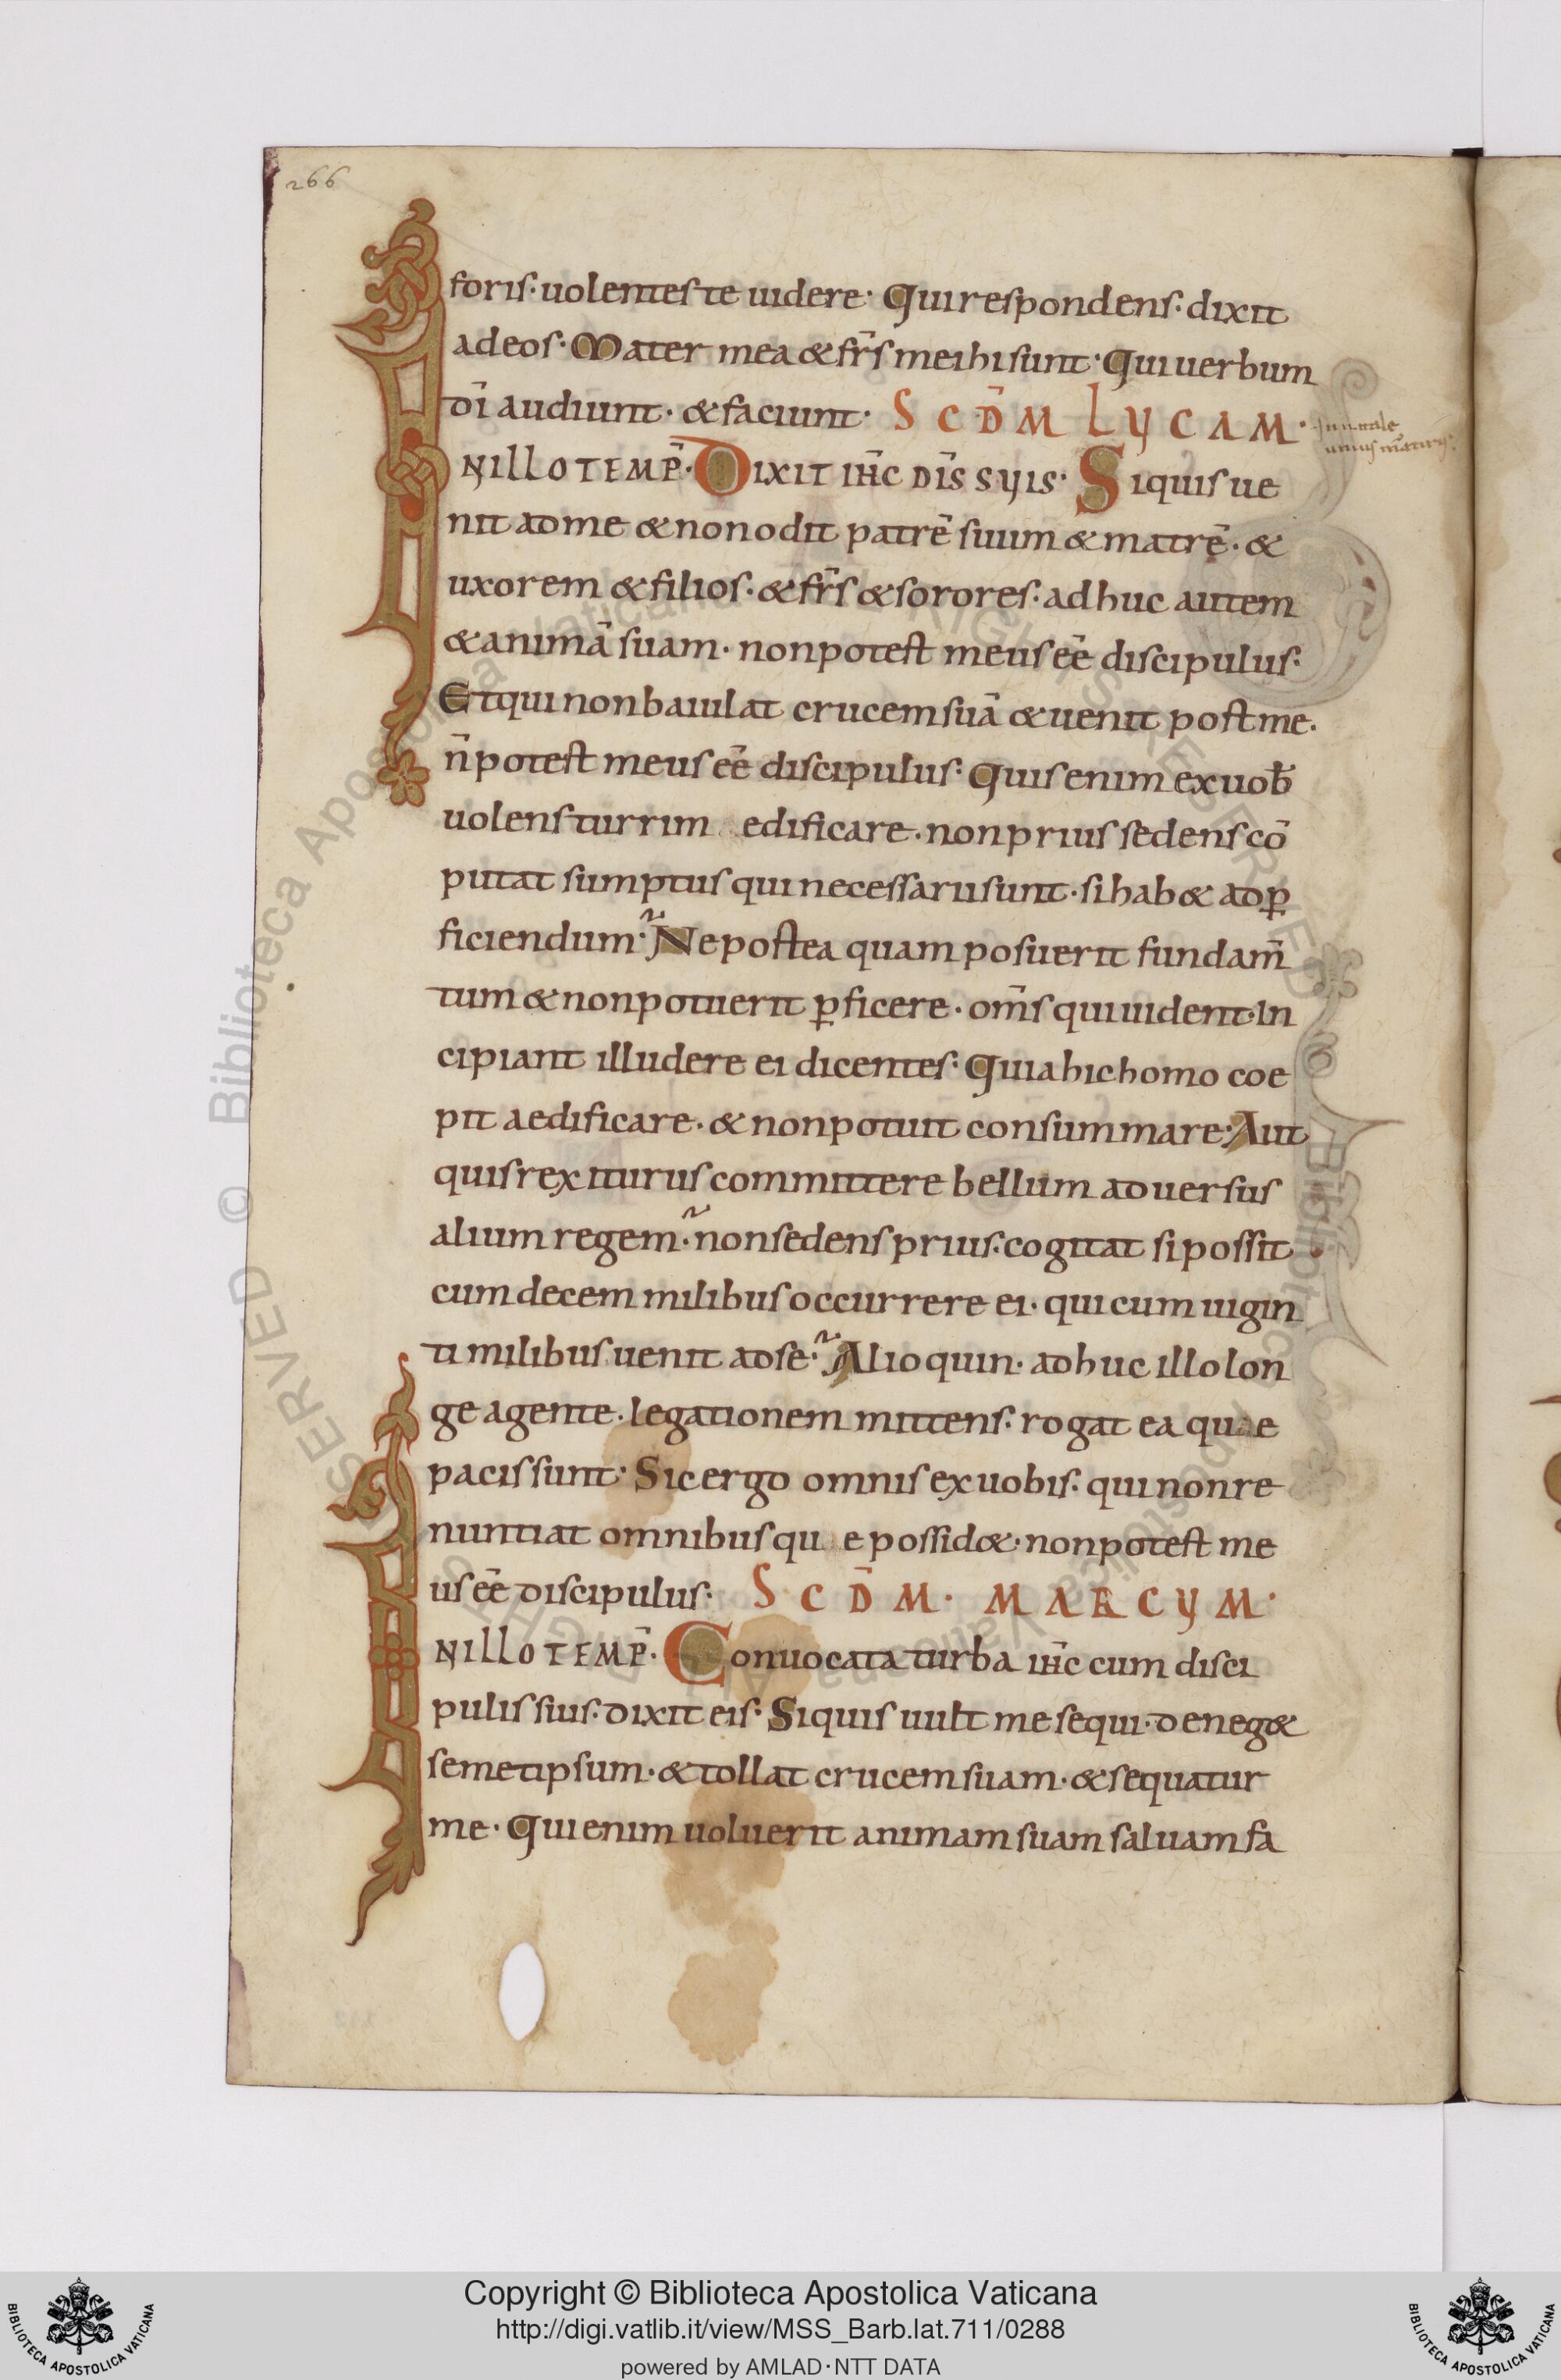 266
foris· uolentes te uidere· Qui respondens· dixit
ad eos· Mater mea & fr̄s mei hi sunt· Qui uerbum
dī audiunt· & faciunt· SCD̄M LUCAM·
IN ILLO TEMP̄· DIXIT IH̄C DĪS SUIS· Si quis ue
nit ad me & non odit patrē suum & matrē· &
uxorem & filios· & fr̄s & sorores· adhuc autem
& animā suam· non potest meus eē discipulus·
Et qui non baiulat crucem suā & uenit post me·
n̄ potest meus eē discipulus· Quis enim ex uob̄
uolens turrim edificare· non prius sedens cō
putat sumptus qui necessarii sunt· si hab& ad ꝑ
ficiendum· Ne postea quam posuerit fundam̄
tum & non potuerit ꝑficere· om̄s qui uident· In
cipiant illudere ei dicentes· Quia hic homo coe
pit aedificare· & non potuit consummare· Aut
quis rex iturus committere bellum aduersus
alium regem· non sedens prius· cogitat si possit
cum decem milibus occurrere ei· qui cum uigin
ti milibus uenit ad se· Alioquin· adhuc illo lon
ge agente· legationem mittens· rogat ea quae
pacis sunt· Sic ergo omnis ex uobis· qui non re
nuntiat omnibus qu e possid&· non potest me
us eē discipulus· SCD̄M· MARCUM·
IN ILLO TEMP̄· Conuocata turba ih̄c cum disci
pulis suis· dixit eis· Si quis uult me sequi· deneg&
semetipsum· & tollat crucem suam· & sequatur
me· Qui enim uoluerit animam suam saluam fa
Copyright © Biblioteca Apostolica Vaticana
http://digi.vatlib.it/view/MSS_Barb.lat.711/0288
powered by AMLAD·NTT DATA
BIBLIOTECA APOSTOLICA VATICANA
BIBLIOTECA APOSTOLICA VATICANA